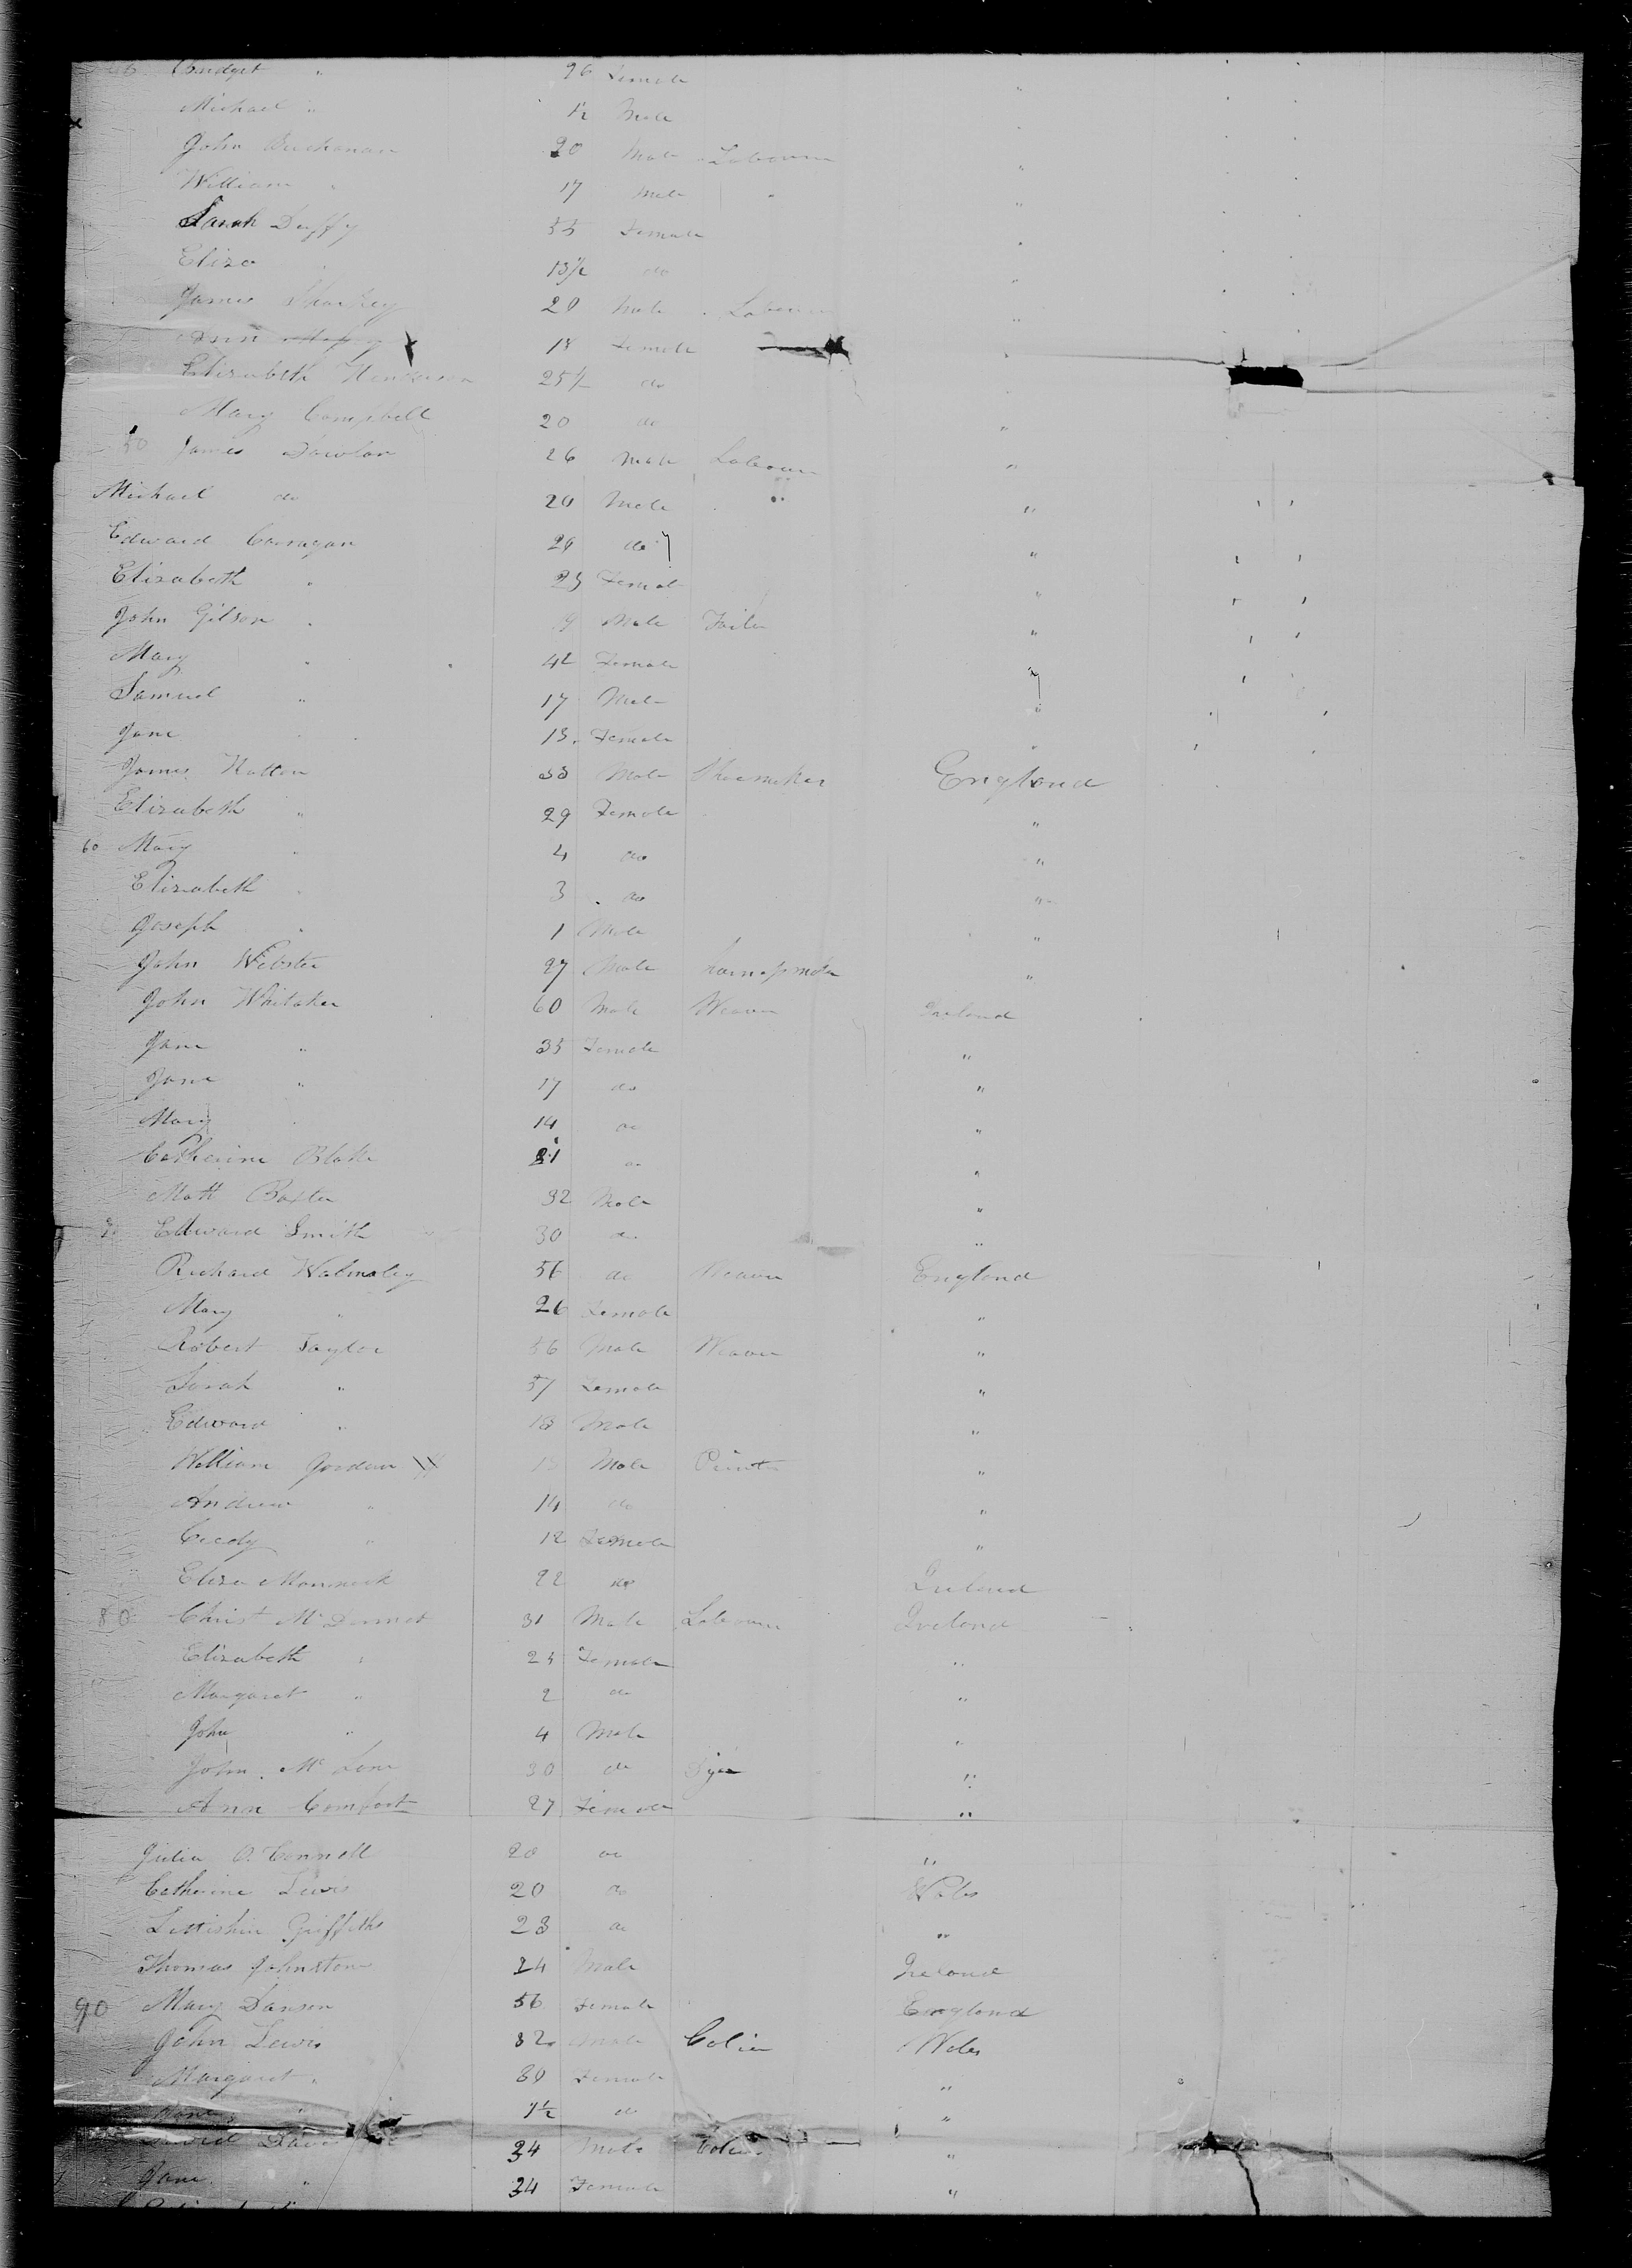 Bridget " 26 Female "
Michael " 1½ Male
John Buchanan 20 Male Labourer "
William " 17 Male " "
Sarah Duffy 55 Female
Eliza 13½ do "
James Sharkey 20 Male Labourer "
Ann 18 Female
Elizabeth 25 do
Mary Campbell 20 do "
50 James Dowlan 26 Male Labourer "
Michael do 20 Male " "
Edward Carragan 29 do "
Elizabeth " 25 Female "
John Gilson Male "
Mary " 42 Female "
Samuel " 17 Male "
Jane 13 Female "
James Hatton 33 Male Shoemaker England
Elizabeth " 29 Female "
60 Mary " 4 do "
Elizabeth " 3 do "
Joseph " 1 Male "
John Webster 27 Male "
John Whitaker 60 Male Weaver Ireland
Jane " 35 Female "
Jane " 17 do "
Mary 14 do "
Catherine Blake 21 do "
Matt Baxter 32 Male "
Edward Smith 30 do "
Richard Walmsley 56 do Weaver England
Mary " 26 Female "
Robert Taylor 56 Male Weaver "
Sarah " 57 Female "
Edward " 18 Male "
William Gordon Male "
Andrew " 14 do "
Cicely " 12 Female "
Eliza 22 do Ireland
80 Christ McDermot 31 Male Labourer Ireland
Elizabeth " 25 Female "
Margaret " 2 do "
John " 4 Male "
John 30 do Dyer "
Ann Comfort 27 Female "
Julia O'Connell 20 do "
Catherine Lewis 20 do Wales
Lettishia Griffiths 23 do "
Thomas Johnston 24 Male Ireland
90 Mary Danson 56 Female England
John Lewis 32 Male Colier Wales
Margaret " 30 Female "
" 1½ do "
David 34 Male Colier "
Jane " 34 Female "